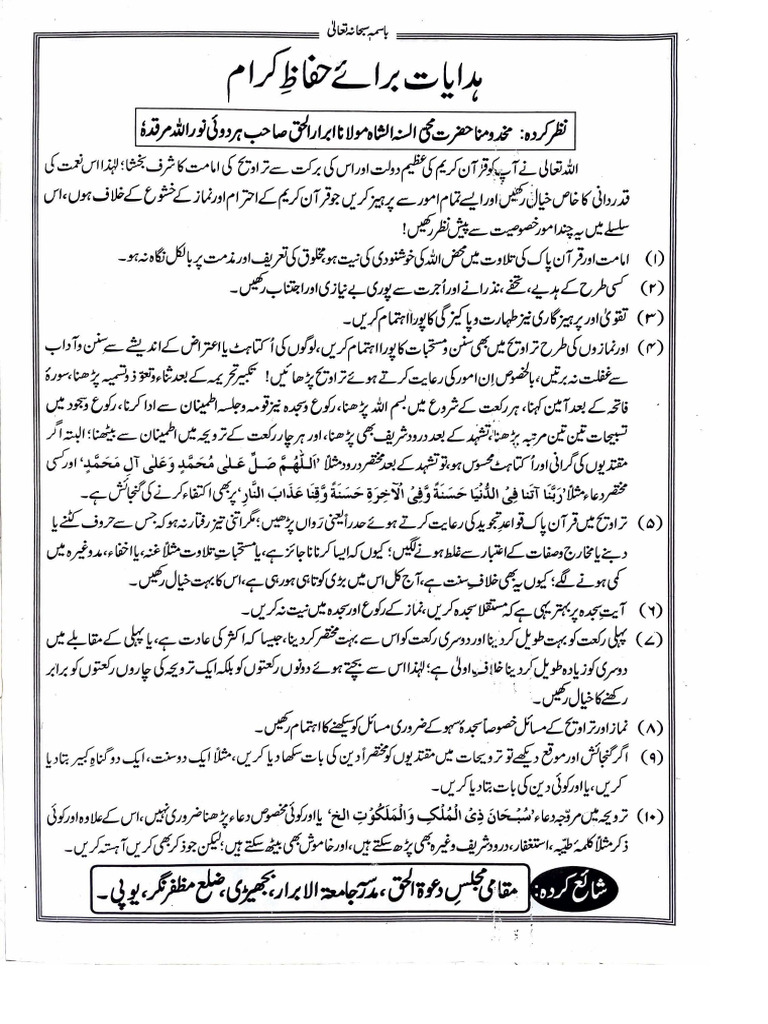 باسمہٖ سبحانہ تعالیٰ
ہدایات برائے حفاظِ کرام
نظر کردہ: مخدومنا حضرت محی السنہ الشاہ مولانا ابرار الحق صاحب ہردوئی نور اللہ مرقدہٗ
اللہ تعالیٰ نے آپ کو قرآن کریم کی عظیم دولت اور اس کی برکت سے تراویح کی امامت کا شرف بخشا؛ لہٰذا اس نعمت کی
قدردانی کا خاص خیال رکھیں اور ایسے تمام امور سے پرہیز کریں جو قرآن کریم کے احترام اور نماز کے خشوع کے خلاف ہوں، اس
سلسلے میں یہ چند امور خصوصیت سے پیش نظر رکھیں!
(۱) امامت اور قرآن پاک کی تلاوت میں محض اللہ کی خوشنودی کی نیت ہو، مخلوق کی تعریف اور مذمت پر بالکل نگاہ نہ ہو۔
(۲) کسی طرح کے ہدیے، تحفے، نذرانے اور اُجرت سے پوری بے نیازی اور اجتناب رکھیں۔
(۳) تقویٰ اور پرہیزگاری نیز طہارت و پاکیزگی کا پورا اہتمام کریں۔
(۴) اور نمازوں کی طرح تراویح میں بھی سنن و مستحبات کا پورا اہتمام کریں، لوگوں کی اُکتاہٹ یا اعتراض کے اندیشے سے سنن و آداب
سے غفلت نہ برتیں، بالخصوص اِن امور کی رعایت کرتے ہوئے تراویح پڑھائیں! تکبیر تحریمہ کے بعد ثناء و تعوّذ و تسمیہ پڑھنا، سورۂ
فاتحہ کے بعد آمین کہنا، ہر رکعت کے شروع میں بسم اللہ پڑھنا، رکوع و سجدہ نیز قومہ و جلسہ اطمینان سے ادا کرنا، رکوع و سجود میں
تسبیحات تین تین مرتبہ پڑھنا، تشہد کے بعد درود شریف بھی پڑھنا، اور ہر چار رکعت کے ترویحہ میں اطمینان سے بیٹھنا؛ البتہ اگر
مقتدیوں کی گرانی اور اُکتاہٹ محسوس ہو، تو تشہد کے بعد مختصر درود مثلاً ’اَللّٰهُمَّ صَلِّ عَلٰى مُحَمَّدٍ وَعَلٰى آلِ مُحَمَّدٍ‘ اور کسی
مختصر دعاء مثلاً ’رَبَّنَا آتِنَا فِى الدُّنْيَا حَسَنَةً وَّفِى الْآخِرَةِ حَسَنَةً وَّقِنَا عَذَابَ النَّارِ‘ پر بھی اکتفاء کرنے کی گنجائش ہے۔
(۵) تراویح میں قرآن پاک قواعدِ تجوید کی رعایت کرتے ہوئے حدراً یعنی رَواں پڑھیں؛ مگر اتنی تیز رفتار نہ ہو کہ جس سے حروف کٹنے یا
دبنے یا مخارج و صفات کے اعتبار سے غلط ہونے لگیں؛ کیوں کہ ایسا کرنا ناجائز ہے، یا مستحباتِ تلاوت مثلاً غنہ، یا اخفاء، مد وغیرہ میں
کمی ہونے لگے؛ کیوں یہ بھی خلافِ سنت ہے، آج کل اس میں بڑی کوتاہی ہو رہی ہے، اس کا بہت خیال رکھیں۔
(۶) آیتِ سجدہ پر بہتر یہی ہے کہ مستقلاً سجدہ کریں، نماز کے رکوع اور سجدہ میں نیت نہ کریں۔
(۷) پہلی رکعت کو بہت طویل کر دینا اور دوسری رکعت کو اس سے بہت مختصر کر دینا، جیسا کہ اکثر کی عادت ہے، یا پہلی کے مقابلے میں
دوسری کو زیادہ طویل کر دینا خلافِ اولیٰ ہے؛ لہٰذا اس سے بچتے ہوئے دونوں رکعتوں کو بلکہ ایک ترویحہ کی چاروں رکعتوں کو برابر
رکھنے کا خیال رکھیں۔
(۸) نماز اور تراویح کے مسائل خصوصاً سجدۂ سہو کے ضروری مسائل کو سیکھنے کا اہتمام رکھیں۔
(۹) اگر گنجائش اور موقع دیکھے تو ترویحات میں مقتدیوں کو مختصراً دین کی بات سکھا دیا کریں، مثلاً ایک دو سنت، ایک دو گناہِ کبیر بتا دیا
کریں، یا اور کوئی دین کی بات بتا دیا کریں۔
(۱۰) ترویحہ میں مروّجہ دعاء ’سُبْحَانَ ذِى الْمُلْكِ وَالْمَلَكُوْتِ الخ‘ یا اور کوئی مخصوص دعاء پڑھنا ضروری نہیں، اس کے علاوہ اور کوئی
ذکر مثلاً کلمۂ طیّبہ، استغفار، درود شریف وغیرہ بھی پڑھ سکتے ہیں، اور خاموش بھی بیٹھ سکتے ہیں؛ لیکن جو ذکر بھی کریں آہستہ کریں۔
شائع کردہ: مقامی مجلسِ دعوۃ الحق، مدرسہ جامعۃ الابرار، بجھیڑی، ضلع مظفر نگر، یوپی۔